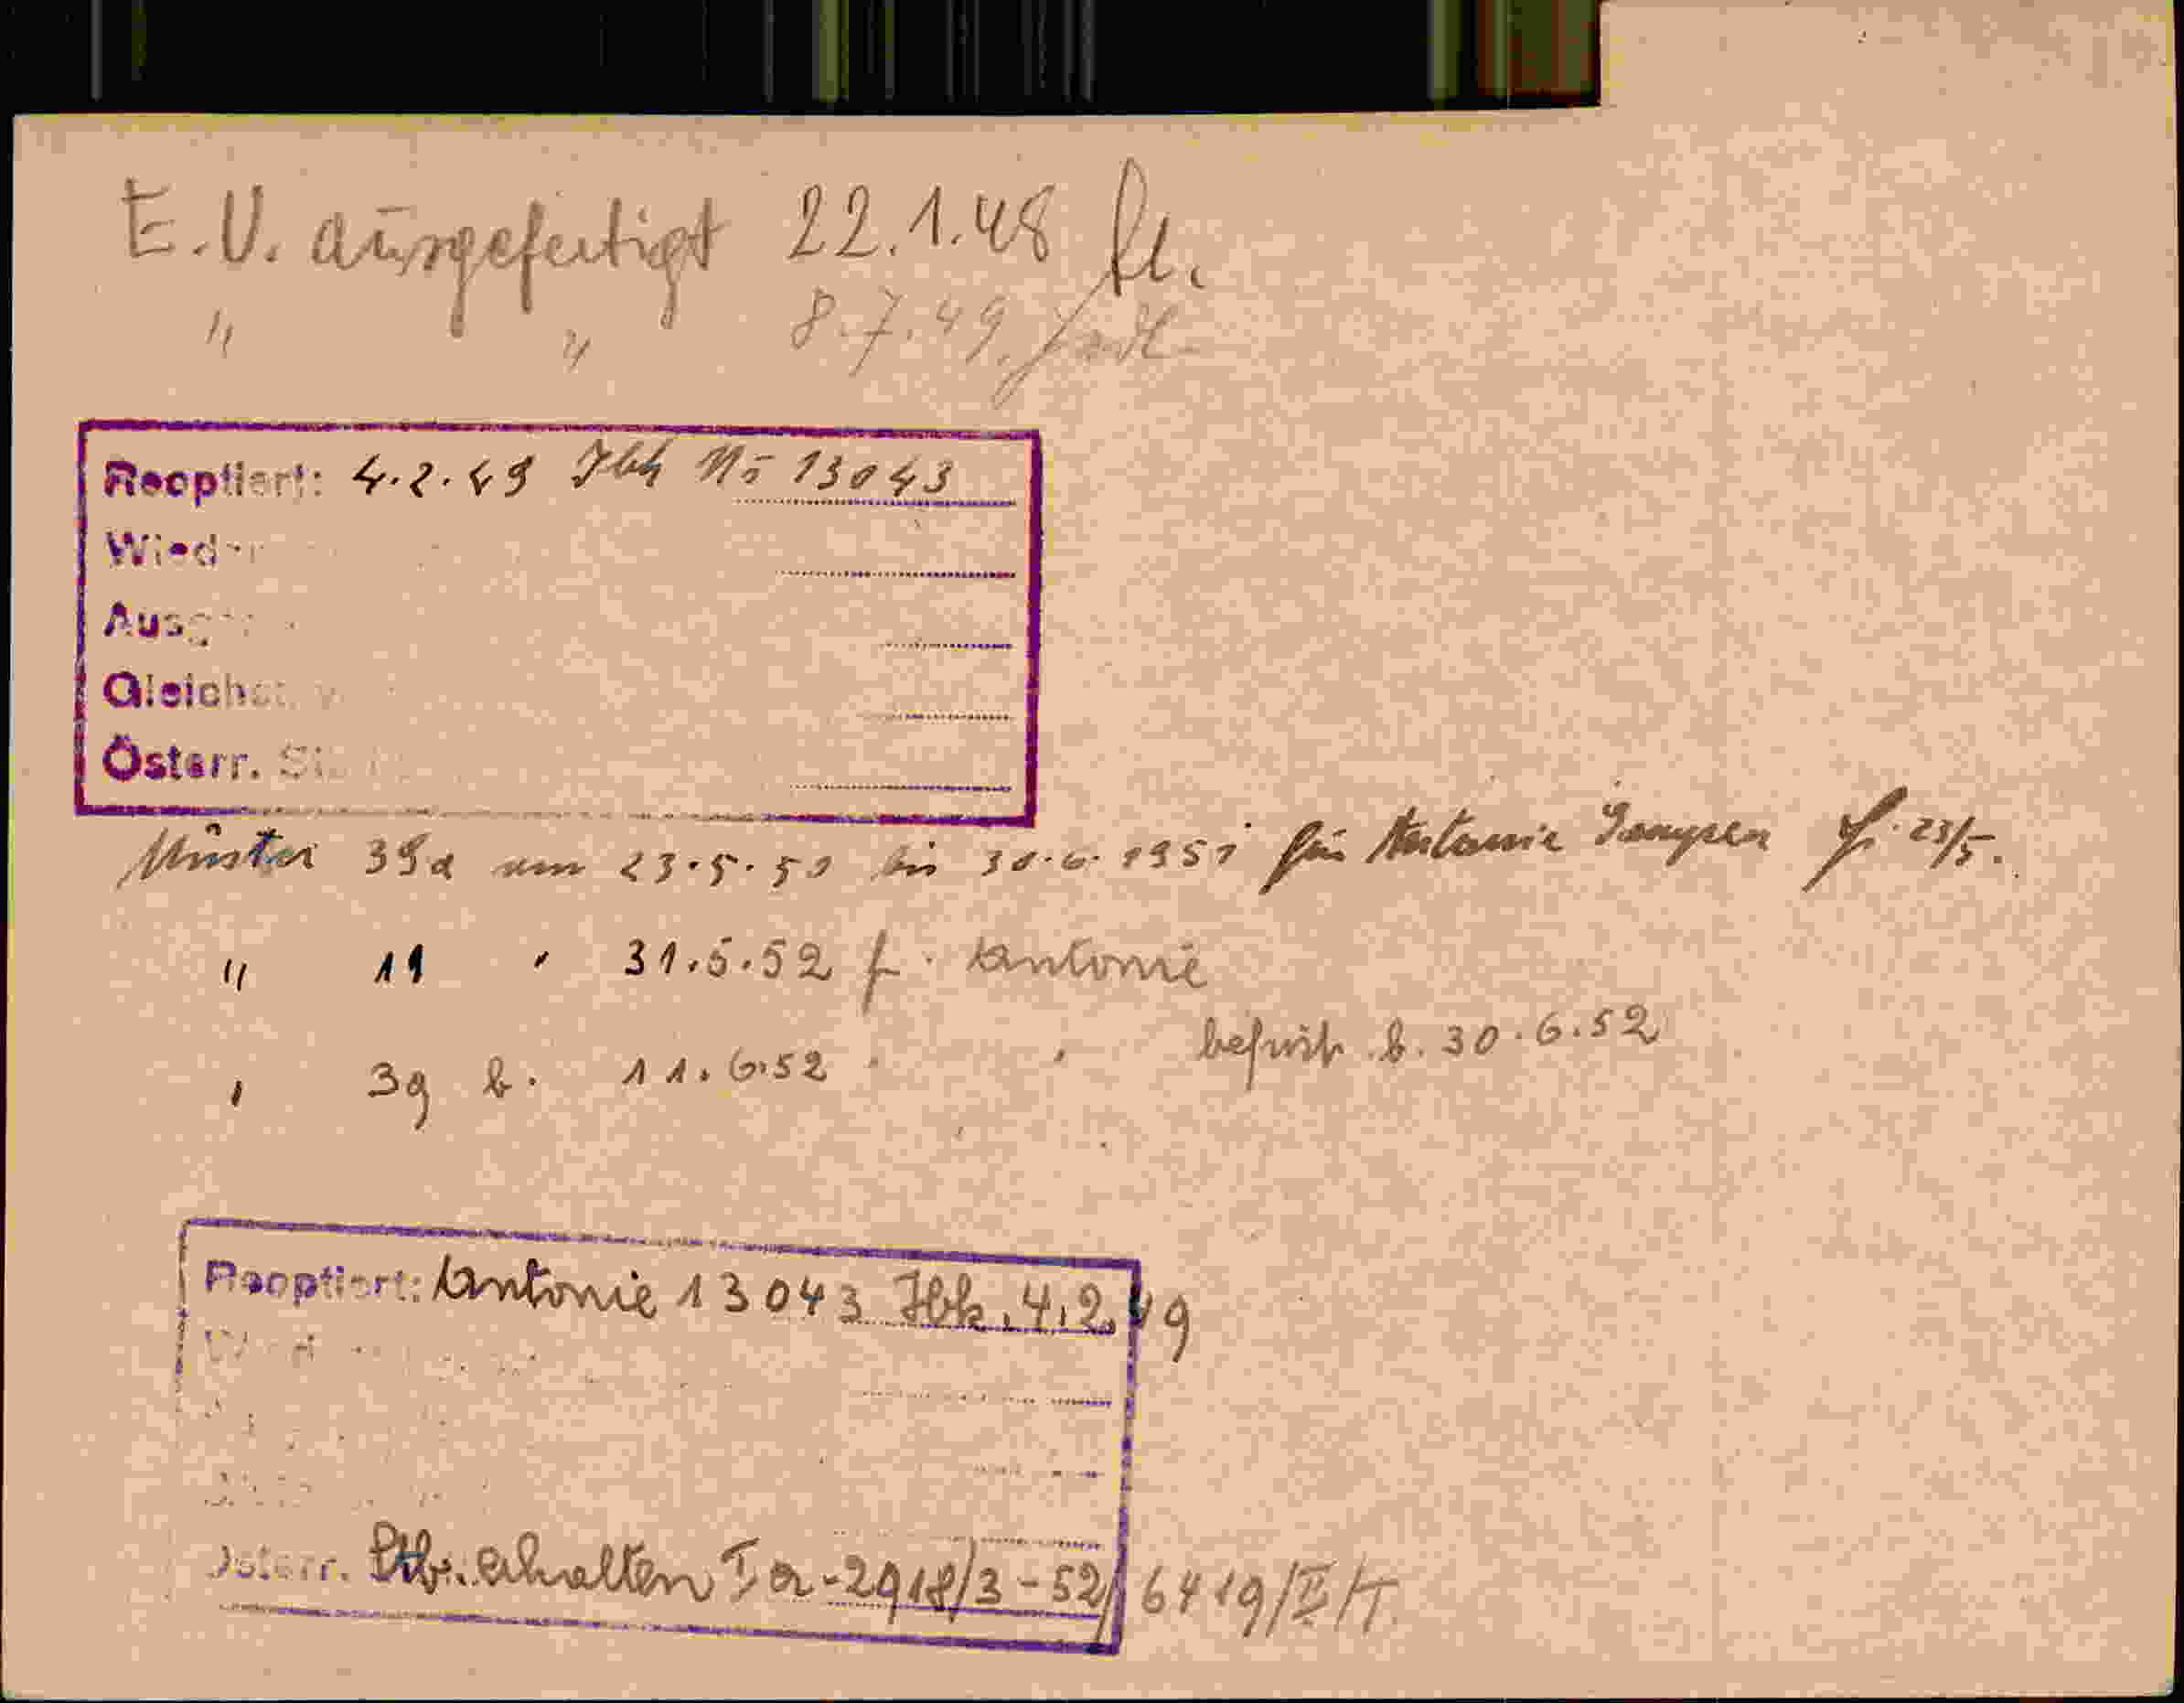 E.V. ausgefertigt 22.1.48
" " 8.7.49.
Reoptiert: 4.2.49 Jbk No 13043
Wieder
Ausg
Gleichst
Österr. St
Muster 39a am 23.5.51 bis 30.6.1951 für Antonie 23/5.
" 11 " 31.5.52 f. Antonie
" 39 b. 11.6.52 " " befrist. b. 30.6.52
Reoptiert: Antonie 13043 Jbk. 4.2.49
Österr. Stb. erhalten Ia-2918/3-52/6419/II/T.